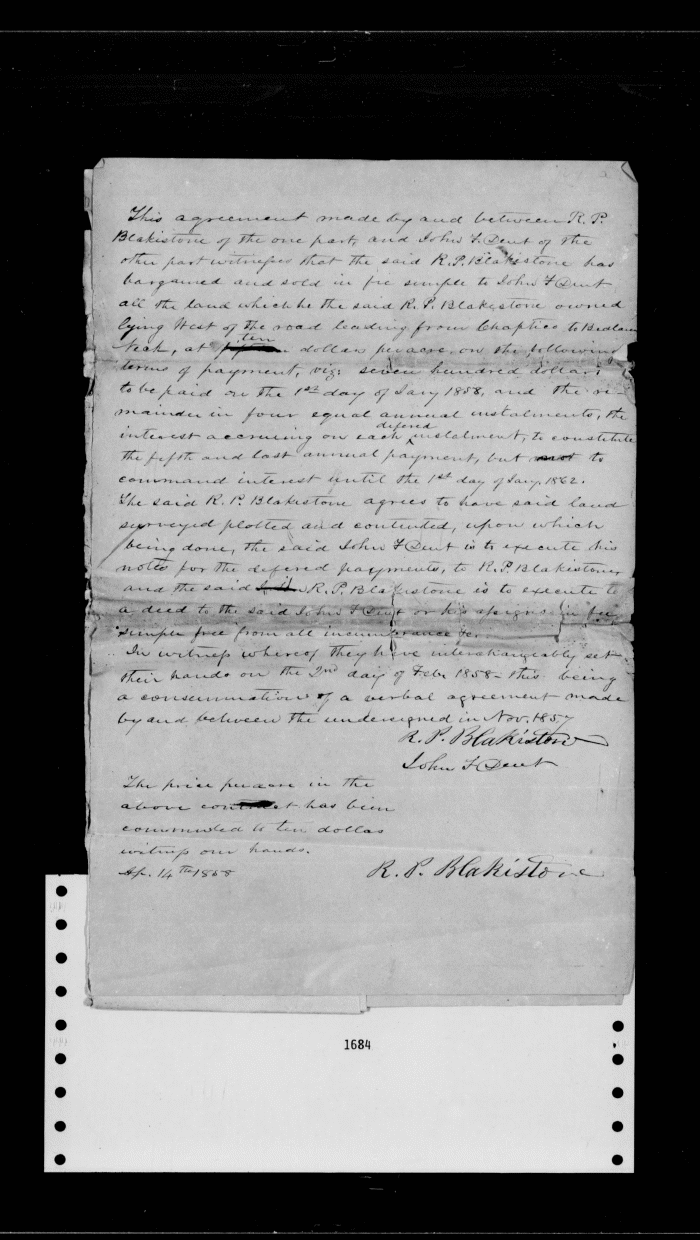 This agreement made by and between R. P.
Blakistone of the one part, and John F. Dent of the
other part witnesses that the said R. P. Blakistone has
bargained and sold in fee simple to John F Dent
all the land which he the said R. P. Blakistone owned
lying West of the road leading from Chaptico to Bedlam
Neck, at ten dollars per acre, on the following
terms of payment, viz: seven hundred dollars
to be paid on the 1st day of Jany 1858, and the re-
mainder in four equal annual instalments, the
interest accruing on each defered instalment, to constitute
the fifth and last annual payment, but not to
command interest until the 1st day of Jany, 1862.
The said R. P. Blakistone agrees to have said land
surveyed plotted and contented, upon which
being done, the said John F Dent is to execute his
notes for the defered payments, to R. P Blakistone,
and the said R. P. Blakistone is to execute to
a deed to the said John F Dent or his assigns in fee
simple free from all incumbrance &c.
In witness whereof they have interchangeably set
their hands on the 2nd day of Feby 1858 - this being
a consummation of a verbal agreement made
by and between the undersigned in Nov. 1857
R. P. Blakistone
John F Dent
The price per acre in the
above contract has been
commuted to ten dollas
witness our hands.
Ap. 14th 1858
R. P. Blakistone
1684